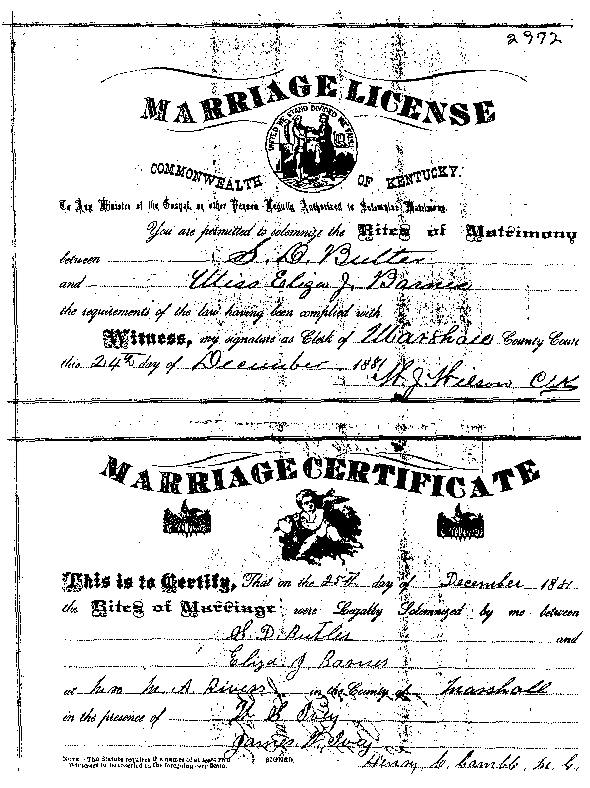 2972
MARRIAGE LICENSE
UNITED WE STAND DIVIDED WE FALL
COMMONWEALTH OF KENTUCKY.
To Any Minister of the Gospel, or other Person Legally Authorized to Solemnize Matrimony.
You are permitted to solemnize the Rites of Matrimony
between S. D. Butler
and Miss Eliza J. Barnes
the requirements of the law having been complied with.
Witness, my signature as Clerk of Marshall County Court
this 24th day of December 1881
W. J. Wilson Clk
MARRIAGE CERTIFICATE
This is to Certify, That on the 25th day of December 1881
the Rites of Marriage were Legally Solemnized by me between
S. D. Butler and
Eliza J Barnes
at M A Rivers in the County of Marshall
in the presence of Ivey
James Ivey
NOTE—The Statute requires the names of at least two
Witnesses to be recorded in the foregoing certificate.
SIGNED,
Henry C. Gamble